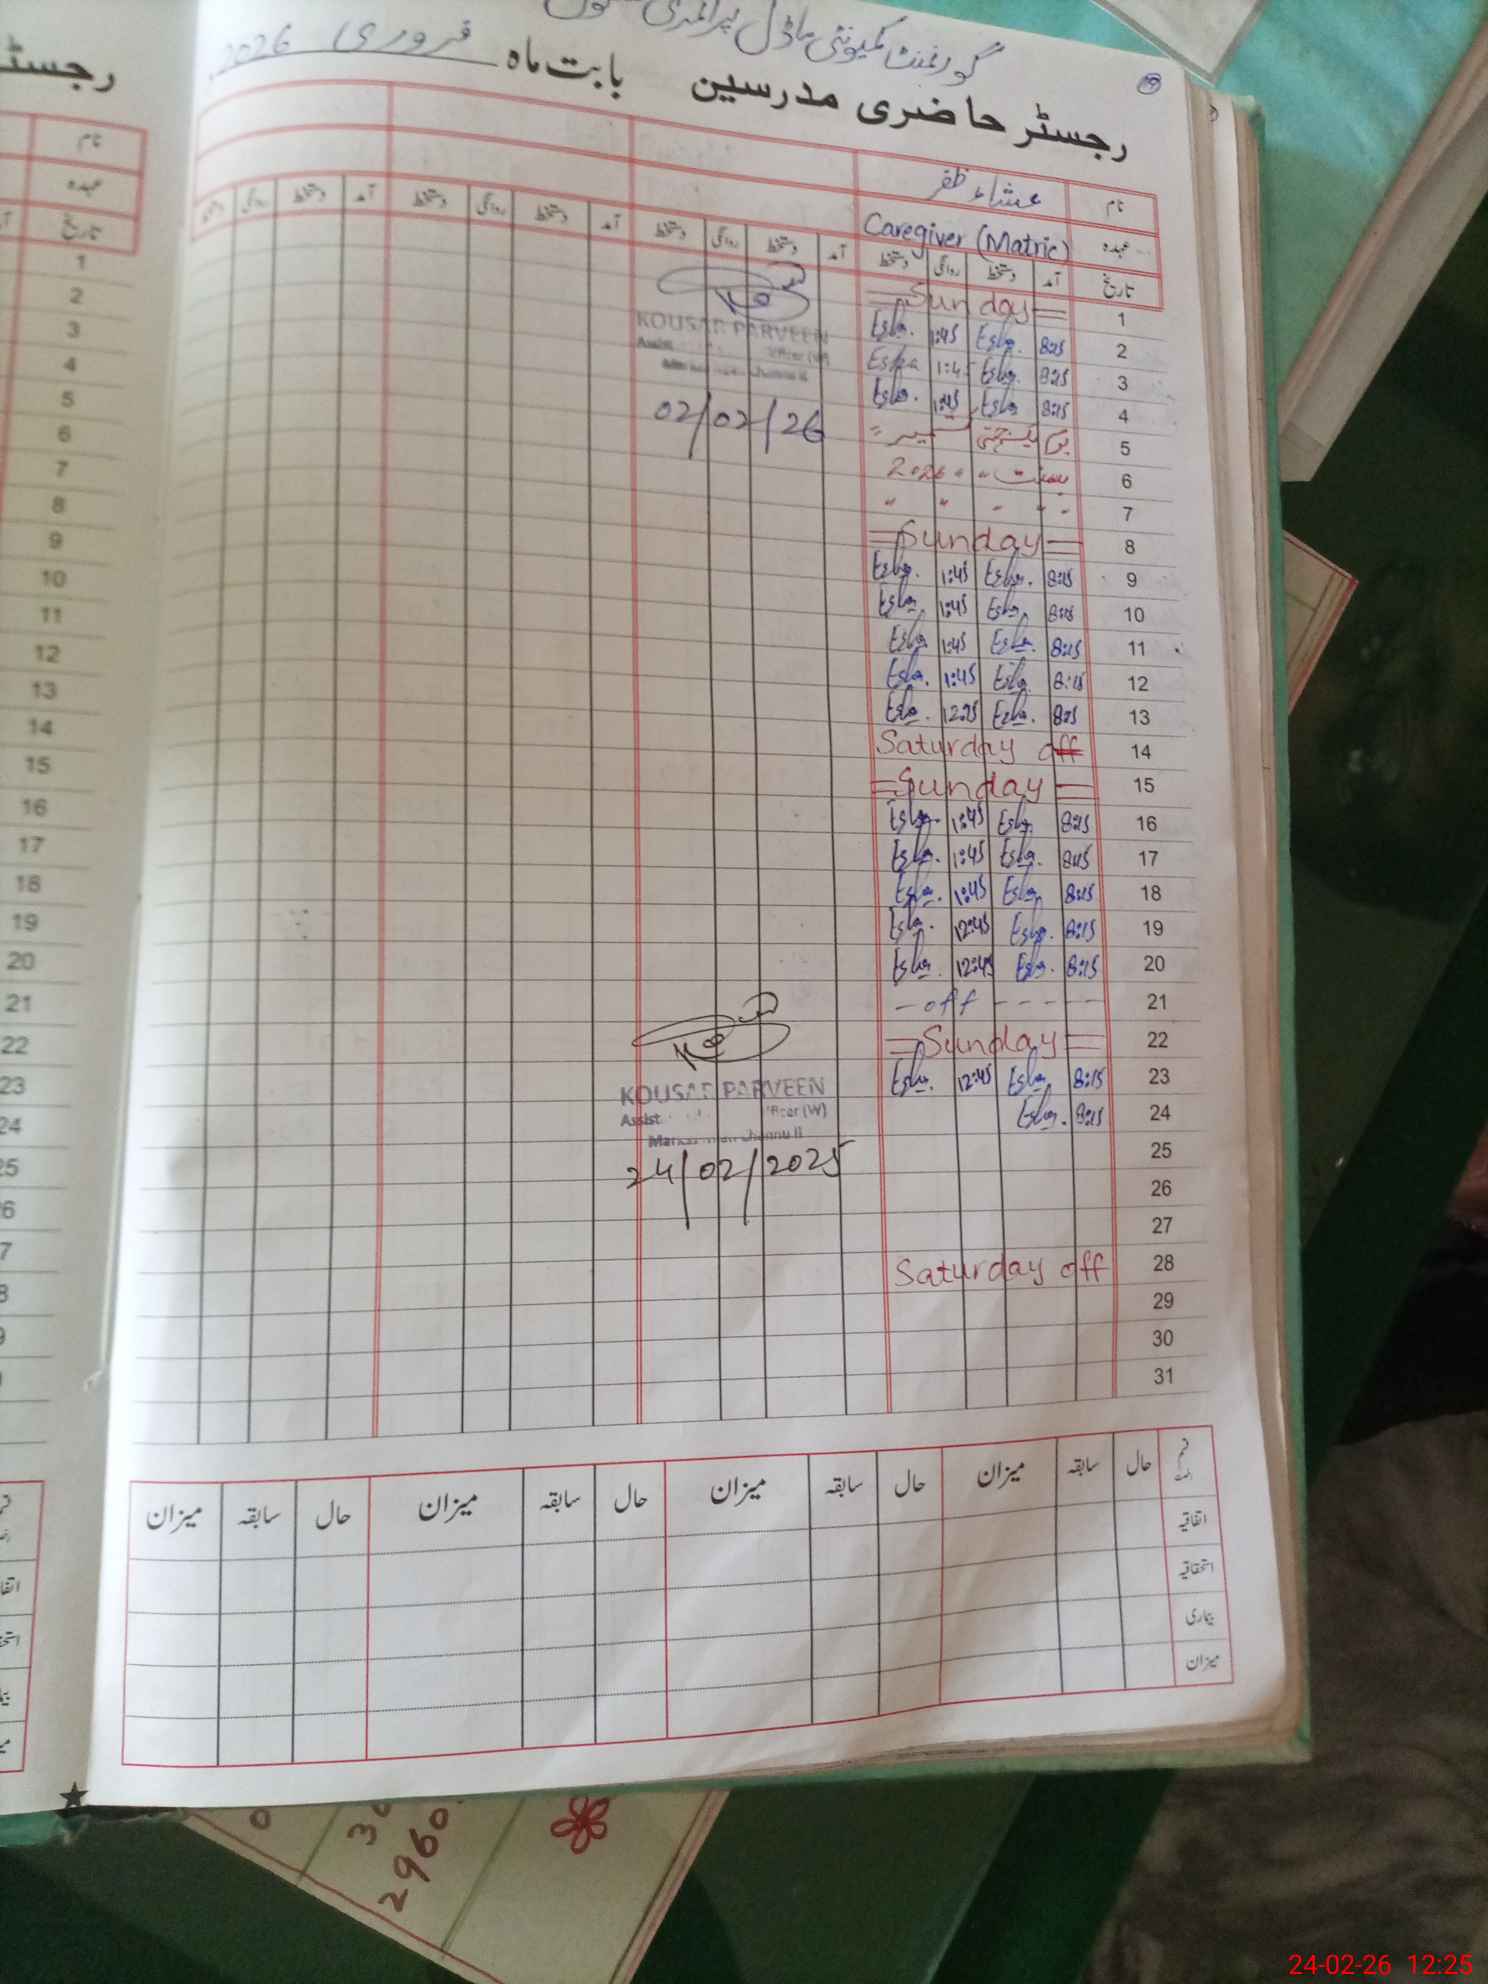 گورنمنٹ کمیونٹی ماڈل پرائمری سکول
رجسٹر حاضری مدرسین بابت ماہ فروری 2026
نام عشاء ظفر
عہدہ Caregiver (Matric)
تاریخ آمد دستخط روانگی دستخط آمد دستخط روانگی دستخط آمد دستخط روانگی دستخط آمد دستخط روانگی دستخط
1 = Sunday =
2 8:15 Esha. 1:45 Esha.
3 8:15 Esha. 1:45 Esha
4 8:15 Esha 1:45 Esha.
5 یوم یکجہتی کشمیر
6 بسنت 2026
7 " " " "
8 = Sunday =
9 8:15 Esha. 1:45 Esha.
10 8:15 Esha. 1:45 Esha
11 8:15 Esha. 1:45 Esha
12 8:15 Esha. 1:45 Esha.
13 8:15 Esha. 12:25 Esha.
14 Saturday off
15 = Sunday =
16 8:15 Esha 1:45 Esha
17 8:15 Esha. 1:45 Esha.
18 8:15 Esha 1:45 Esha.
19 8:15 Esha. 12:45 Esha.
20 8:15 Esha. 12:45 Esha.
21 - off - - - - -
22 = Sunday =
23 8:15 Esha 12:45 Esha.
24 8:15 Esha.
25
26
27
28 Saturday off
29
30
31
KOUSAR PARVEEN
02/02/26
KOUSAR PARVEEN
24/02/2025
حال سابقہ میزان حال سابقہ میزان حال سابقہ میزان حال سابقہ میزان
اتفاقیہ
استحقاقیہ
بیماری
میزان
رجسٹر
نام
عہدہ
تاریخ
1
2
3
4
5
6
7
8
9
10
11
12
13
14
15
16
17
18
19
20
21
22
23
24
25
2960
24-02-26 12:25